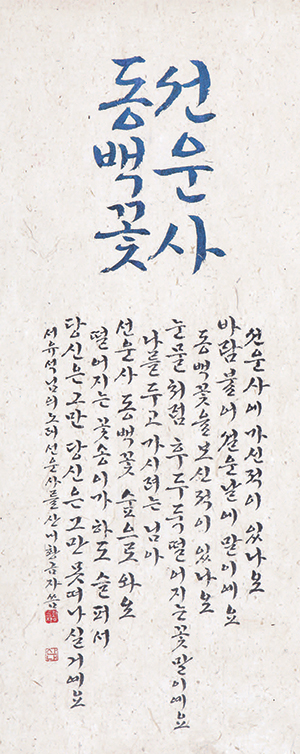 선운사
동백꽃
선운사에 가신적이 있나요
바람 불어 설운날에 말이에요
동백꽃을 보신적이 있나요
눈물처럼 후두둑 떨어지는 꽃 말이예요
나를 두고 가시려는 님아
선운사 동백꽃 숲으로 와요
떨어지는 꽃송이가 하도 슬퍼서
당신은 그만 당신은 그만 못떠나실 거예요
서유석님의 노래 선운사를 씀